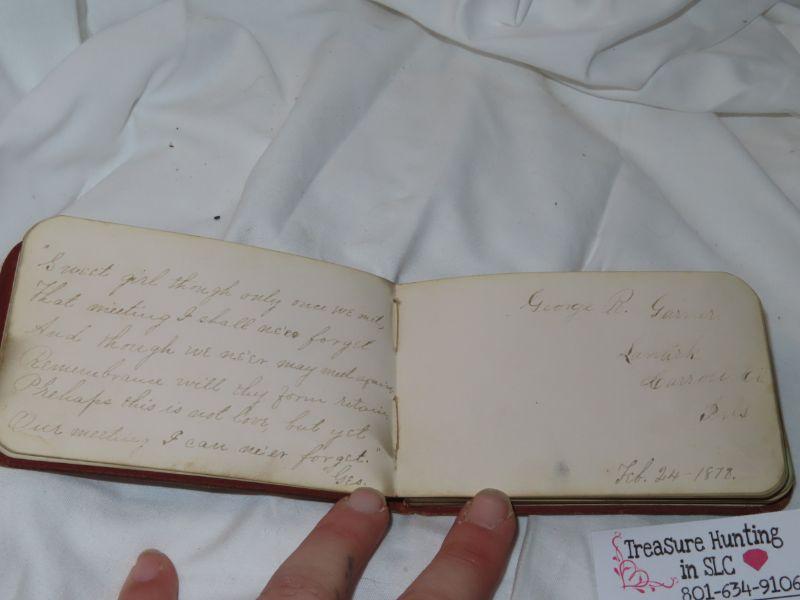 "Sweet girl though only once we met,
That meeting I shall ne'er forget
And though we ne'er may meet again,
Remembrance will thy form retain
Prehaps this is not love, but yet
Our meeting I can ne'er forget."
Geo.
George R. Garner
Carroll Co
Feb. 24-1878.
Treasure Hunting
in SLC
801-634-9106